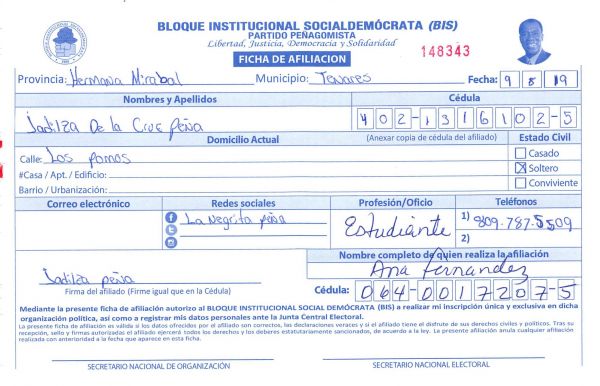 BLOQUE INSTITUCIONAL SOCIALDEMÓCRATA (BIS)
PARTIDO PEÑAGOMISTA
Libertad, Justicia, Democracia y Solidaridad
148343
FICHA DE AFILIACION
Provincia: Hermana Mirabal Municipio: Tenares Fecha: 9 8 19
Nombres y Apellidos Cédula
De la Cruz Peña 402-1316102-5
Domicilio Actual (Anexar copia de cédula del afiliado) Estado Civil
Calle: Los Pomos Casado
#Casa / Apt. / Edificio: Soltero
Barrio / Urbanización: Conviviente
Correo electrónico Redes sociales Profesión/Oficio Teléfonos
La Negrita peña Estudiante 1) 809-787-5509
2)
Nombre completo de quien realiza la afiliación
Ana Fernandez
peña
Firma del afiliado (Firme igual que en la Cédula) Cédula: 064-0017207-5
Mediante la presente ficha de afiliación autorizo al BLOQUE INSTITUCIONAL SOCIAL DEMÓCRATA (BIS) a realizar mi inscripción única y exclusiva en dicha
organización política, así como a registrar mis datos personales ante la Junta Central Electoral.
La presente ficha de afiliación es válida si los datos ofrecidos por el afiliado son correctos, las declaraciones veraces y si el afiliado tiene el disfrute de sus derechos civiles y políticos. Tras su
recepción, sello y firmas autorizadas el afiliado ejercerá todos los derechos y los deberes estatutariamente sancionados, de acuerdo a la ley. La presente afiliación anula cualquier afiliación
realizada con anterioridad a la fecha que aparece en esta ficha.
SECRETARIO NACIONAL DE ORGANIZACIÓN SECRETARIO NACIONAL ELECTORAL